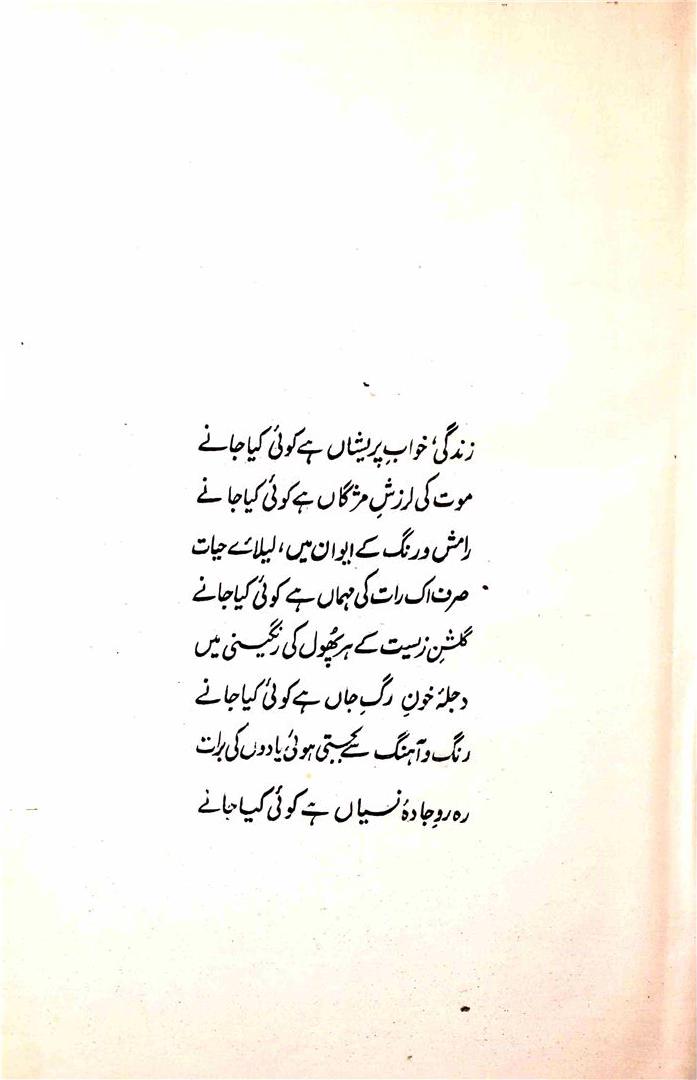 زندگی، خوابِ پریشاں ہے کوئی کیا جانے
موت کی لرزشِ مژگاں ہے کوئی کیا جانے
رامش و رنگ کے ایوان میں، لیلائے حیات
صرف اک رات کی مہماں ہے کوئی کیا جانے
گلشنِ زیست کے ہر پھول کی رنگینی میں
دجلۂ خونِ رگِ جاں ہے کوئی کیا جانے
رنگ و آہنگ سے بجتی ہوئی یادوں کی برات
رہ روِ جادۂ نسیاں ہے کوئی کیا جانے